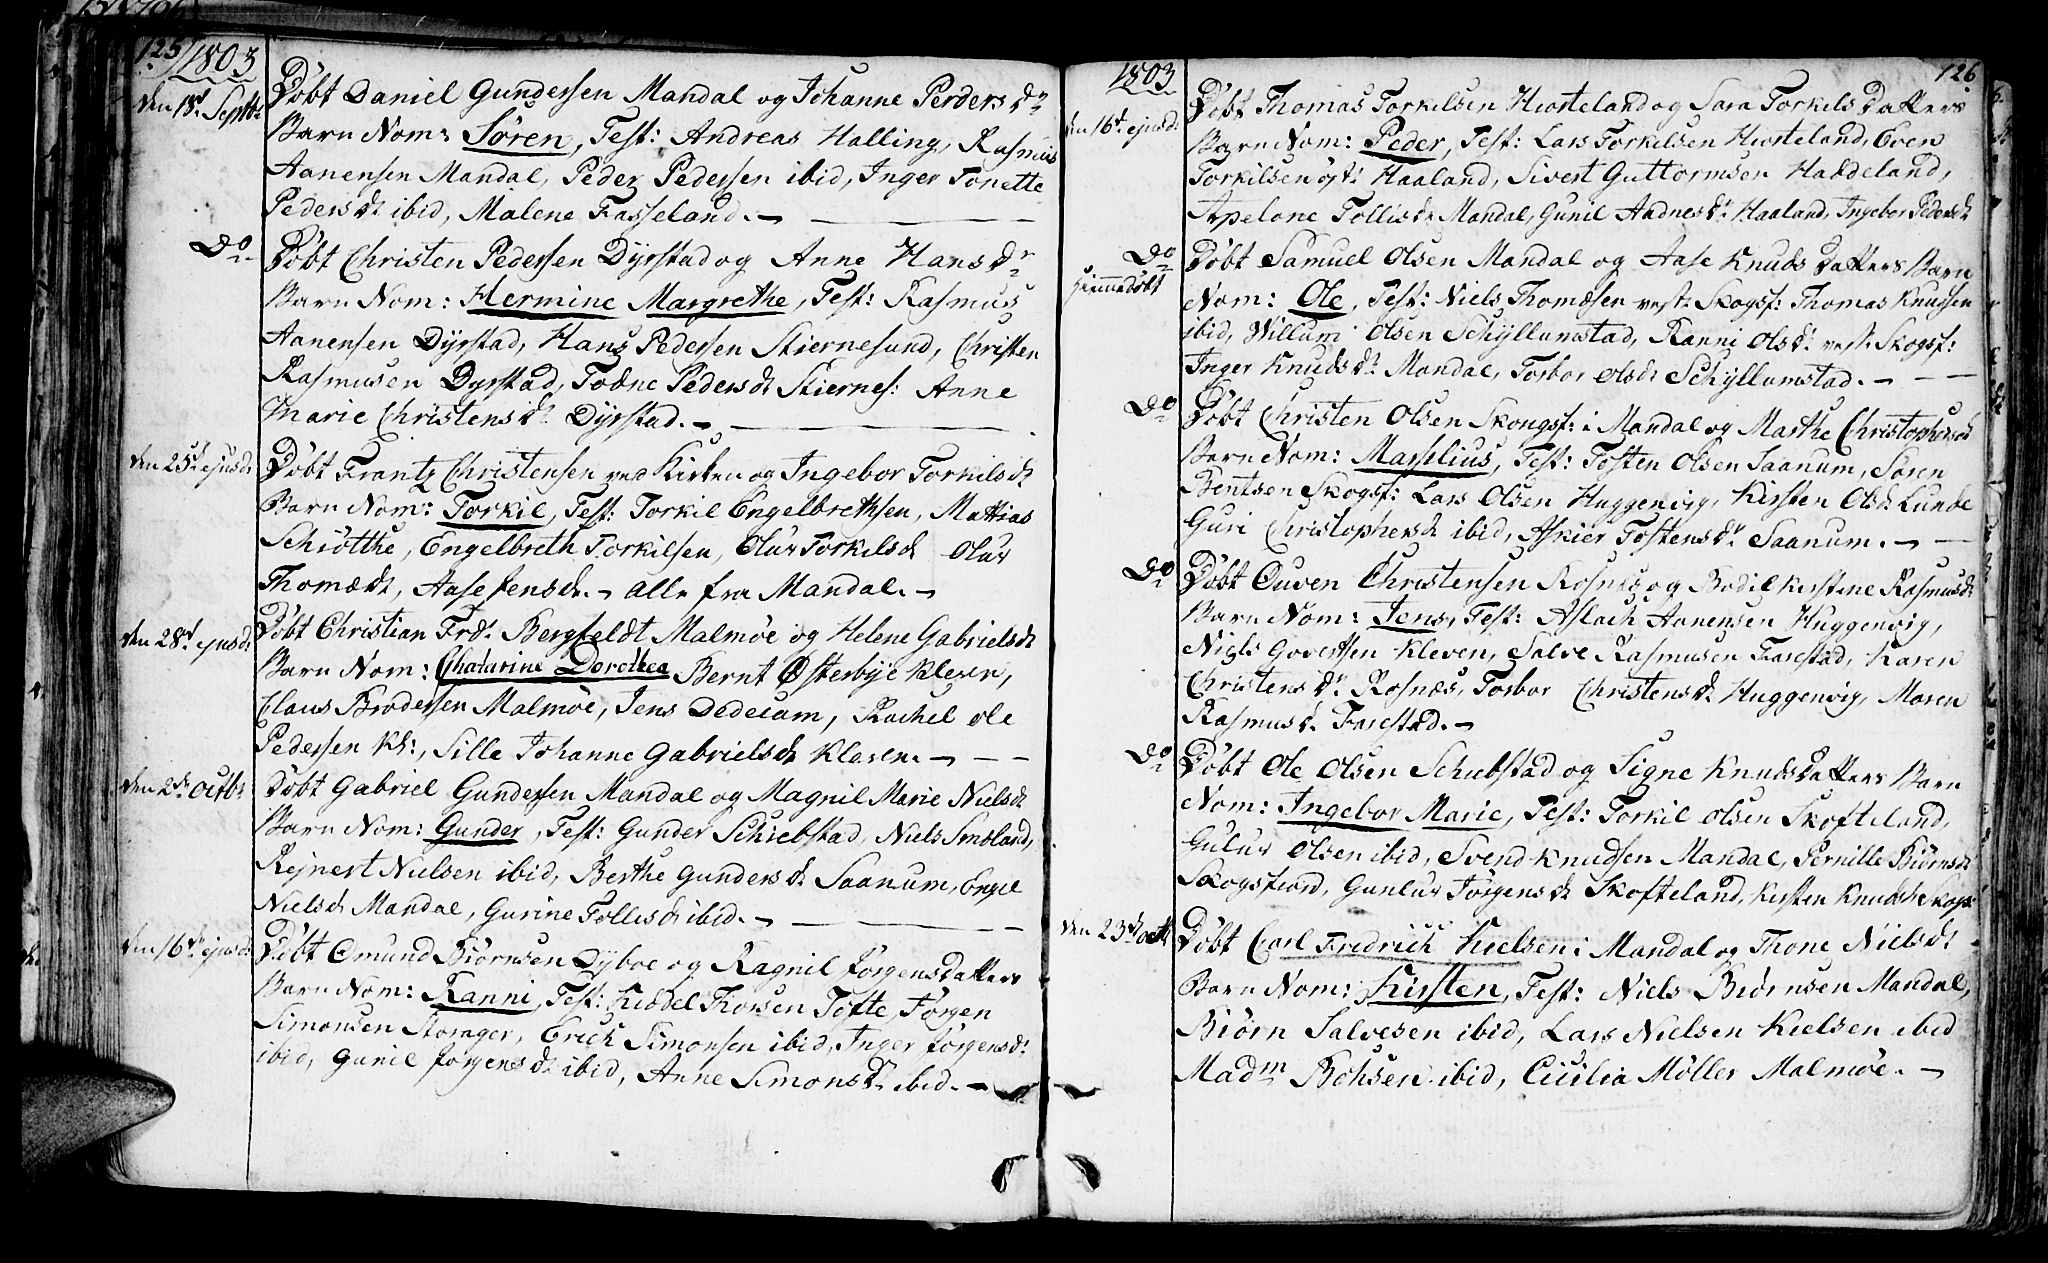 125
1803
den 18d Septbr
Døbt Daniel Gundersen Mandal og Johanne Perders Dr
Barn Nom: Søren, Test: Andreas Halling, Rasmus
Aanensen Mandal, Peder Pedersen ibid, Inger Tonette
Pedersdr ibid, Malene Fasseland. –
Do
Døbt Christen Pedersen Dyrstad og Anne Hansdr
Barn Nom: Hermine Margrethe, Test: Rasmus
Aanensen Dyrstad, Hans Pedersen Stiernesund, Christen
Rasmusen Dyrstad, Tobne Pedersdr Stiernes: Anne
Marie Christensdr Dyrstad. –
den 25d ejusd:
Døbt Frantz Christensen ved Kirken og Ingebor Torkilsdr
Barn Nom: Torkil, Test: Torkil Engelbrethsen, Mattias
Schiøtthe, Engelbreth Torkilsen, Olur Torkilsdr Olur
Thomædr, Aase Jensdr. – alle fra Mandal. –
den 28d ejusd:
Døbt Christian Frd: Bergfeldt Malmøe og Helene Gabrielsdr
Barn Nom: Chatarine Dorothea Bernt Østerbye Kleven,
Claus Brodersen Malmøe, Jens Dedecam, Rachel ole
Pedersen Kl:, Sille Johanne Gabrielsdr Kleven. –
den 2de Octbr
Døbt Gabriel Gundersen Mandal og Magnil Marie Nielsdr
Barn Nom: Gunder, Test: Gunder Schiebstad, Niels Smoland,
Rejnert Nielsen ibid, Berthe Gundersdr Saanum, Engel
Nielsdr Mandal, Gurine Tollisdr ibid. –
den 16de ejusd:
Døbt Omund Biørnsen Dyboe og Ragnil Jørgensdatters
Barn Nom: Ranni, Test: Kiddel Thorsen Tofte, Jørgen
Simonsen Storager, Erich Simonsen ibid, Inger Jørgensdr
ibid, Gunil Jørgensdr ibid, Anne Simonsdr ibid. –
1803
126
den 16d ejusd:
Døbt Thomas Torkilsen Hiorteland og Sara Torkils Datters
Barn Nom: Peder, Test: Lars Torkilsen Hiorteland, Even
Torkilsen øst: Haaland, Sivert Guttormsen Haddeland,
Apelone Tollisdr Mandal, Gunil Aadnesdr Haaland, Ingebor Pedersdr
Do
Hiemmedøbt
Døbt Samuel Olsen Mandal og Aase Knuds Datters Barn
Nom: Ole, Test: Niels Thomæsen vest: Skogsf: Thomas Knudsen
ibid, Willum Olsen Schyllumstad, Ranni Olsdr vest: Skogsf:
Inger Knudsdr Mandal, Torbor Olsdr Schyllumstad. –
Do
Døbt Christen Olsen Skongsf: i Mandal og Marthe Christophersdr
Barn Nom: Marselius, Test: Tosten Olsen Saanum, Søren
Bentsen Skogsf: Lars Olsen Huggenvig, Kirsten Olsdr Lunde
Guri Christophersdr ibid, Askier Tostensdr Saanum. –
Do
Døbt Ouven Christensen Rosnes og Bodil Kirstine Rasmusdr
Barn Nom: Jens, Test: Aslach Aanensen Huggenvig,
Niels Govertsen Kleven, Salve Rasmusen Farestad, Karen
Christensdr Rosnæs, Torbor Christensdr Huggenvig, Maren
Rasmusdr Farestad. –
Do
Døbt Ole Olsen Schiebstad og Signe Knudsdatters Barn
Nom: Ingebor Marie, Test: Torkil Olsen Skofteland,
Gulur Olsen ibid, Svend Knudsen Mandal, Pernille Biørnsdr
Skogsfiord, Gunlur Jørgensdr Skofteland, Kirsten Knudsdr Skogs:
den 23d octb:
Døbt Carl Fredrich Kielsen i Mandal og Thone Nielsdr
Barn Nom: Kirsten, Test: Niels Biørnsen Mandal,
Biørn Salvesen ibid, Lars Nielsen Kielsen ibid
Madm Bohsen ibid, Cicilia Møller Malmøe. –